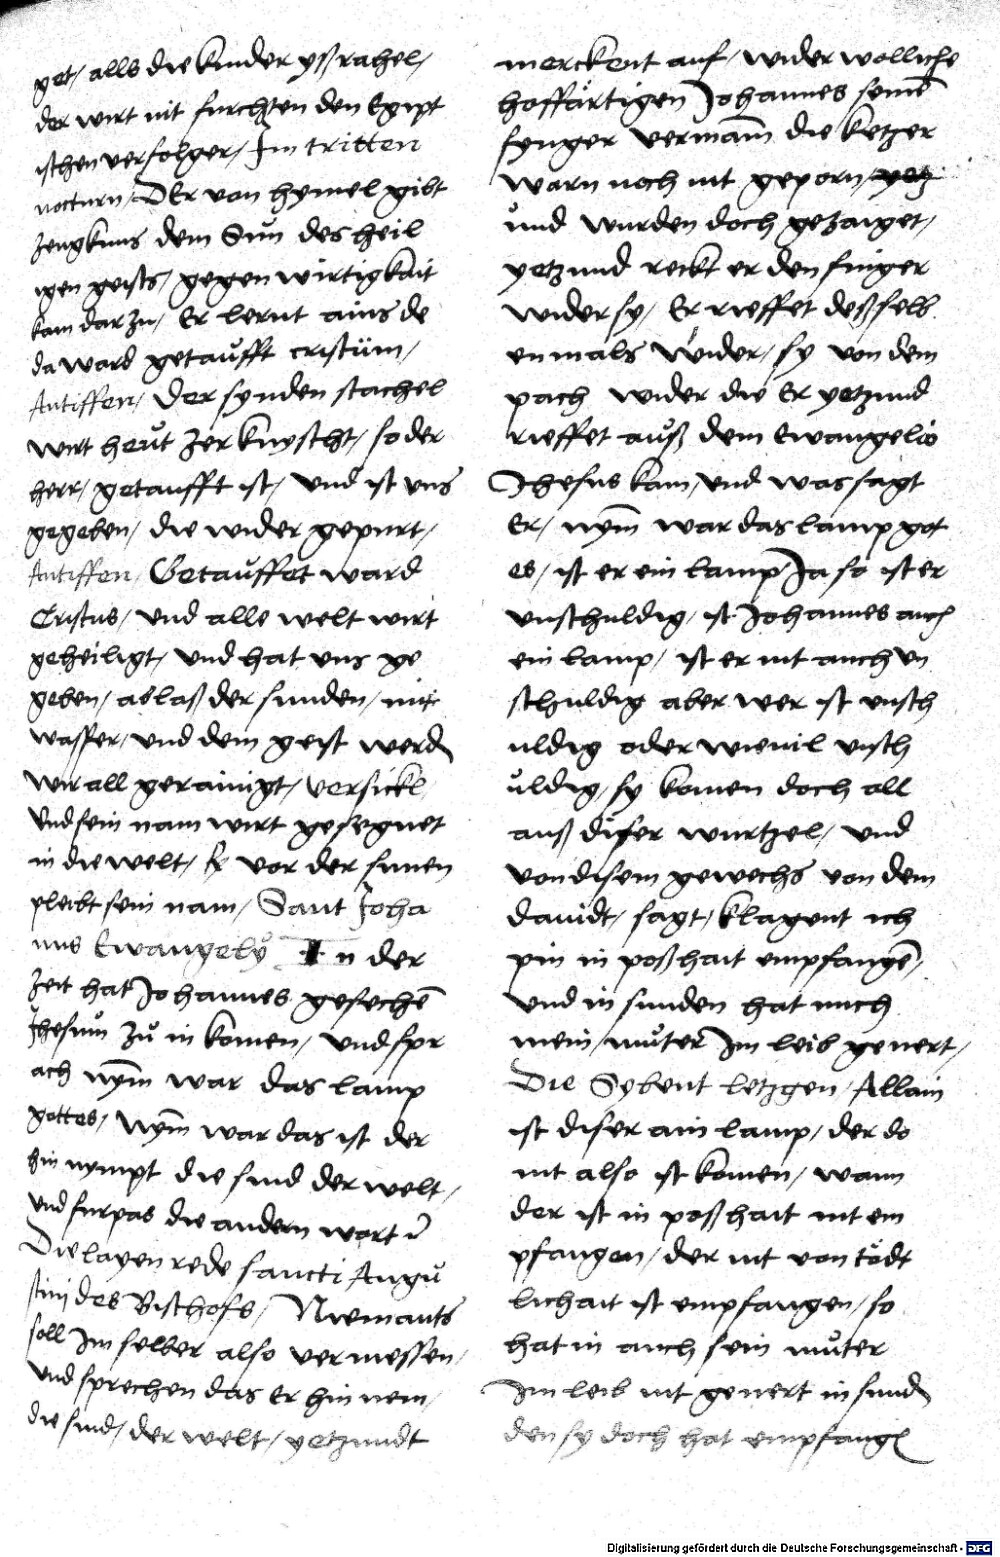 get / alls die kinder yßrahel /
der wirt nit furchten den Egipt
ischen verfolger / Im tritten
nocturn / DEr von hymel gibt
zeugknus dem Sun des heil
igen geists / gegenwirtigkait
kam dar zu / Er lernt ains de
da ward getaufft cristum /
Antiffen / Der synden stachel
wirt heut zerknyscht / so der
herr / getaufft ist / vnd ist vns
gegeben / die wider gepurt /
Antiffen / Getauffet ward
Cristus / vnd alle welt wirt
geheiligt / vnd hat vns ge
geben / ablaß der sunden / mit
wasser / vnd dem geist werdn
wir all gerainigt / versickl
vnd sein nam wirt gesegnet
in die welt / vor der sunen
pleibt sein nam / Sant Joha
nns Ewangely In der
zeit hat Johannes gesechē
Jhesum zu in komen / vnd spr
ach nym̄ war das lamp
gottes / Nym̄ war das ist der
hin nympt die sund der welt /
vnd furpas die andern wort
Die layen rede sancti Augu
stini des Bischofs / Niemants
soll Im selber also vermessen /
vnd sprechen das Er hin nem /
die sund / der welt / yetzundt
merckent auf / wider wolliche
hoffärtigen Johannes seinē
fynger vermaint die ketzer
warn noch nit geporn / yetz
vnd wurden doch getzaiget /
yetzund reckt er den finger
wider sy / Er rieffet desselb
en mals wider / sy von dem
pach wider die Er yetzund
rieffet auß dem Ewangelio
Jhesus kam / vnd was sagt
Er / nym̄ war das lamp got
es / ist er ein lamp Ja so ist er
vnschuldig / ist Johannes auch
ein lamp / ist er nit auch vn
schuldig aber wer ist vnsch
uldig oder wievil vnsch
uldig / sy komen doch all
auß diser wurtzel / vnd
von disem gewechs von dem
dauidt / sagt / klagent ich
pin in poßhait empfangē /
vnd in sunden hat mich
mein / muter Im leib genert /
Die Sybent letzgen / Allain
ist diser ain lamp / der do
nit also ist komen / wann
der ist in poßhait nit em
pfangen / der nit von tödt
lichait ist empfangen / so
hat in auch sein muter
Im leib nit genert in sundn
den sy doch hat empfangn
Digitalisierung gefördert durch die Deutsche Forschungsgemeinschaft - DFG